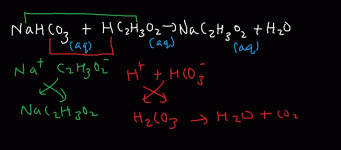 NaHCO₃ + HC₂H₃O₂ → NaC₂H₃O₂ + H₂O
(aq) (aq) (aq)
Na⁺ C₂H₃O₂⁻ H⁺ + HCO₃⁻
NaC₂H₃O₂ H₂CO₃ → H₂O + CO₂